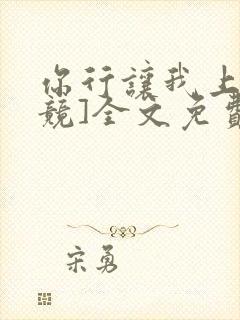 你行讓我上
競]全文免費
宋勇